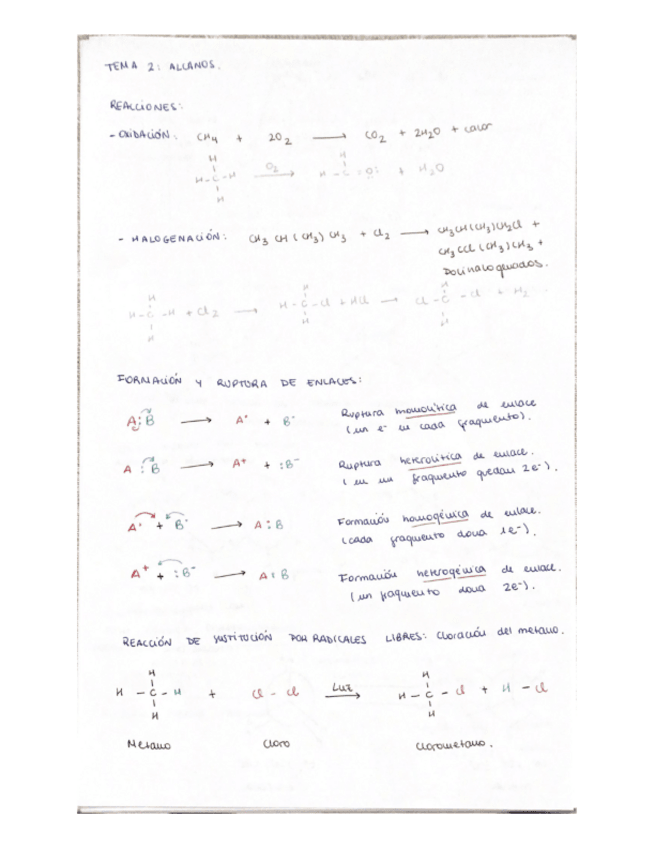 TEMA 2: ALCANOS.
REACCIONES:
- OXIDACIÓN: CH4 + 2O2 → CO2 + 2H2O + calor
H H
H-C-H O2 → H-C=O: + H2O
H
- HALOGENACIÓN: CH3 CH (CH3) CH3 + Cl2 → CH3CH(CH3)CH2Cl +
CH3CCl(CH3)CH3 +
Polihalogenados.
H H H
H-C-H + Cl2 → H-C-Cl + HCl → Cl-C-Cl + H2
H H H
FORMACIÓN Y RUPTURA DE ENLACES:
A:B → A· + B· Ruptura homolítica de enlace
(un e- en cada fragmento).
A :B → A+ + :B- Ruptura heterolítica de enlace.
(en un fragmento quedan 2e-).
A· + B· → A:B Formación homogénica de enlace.
(cada fragmento dona 1e-).
A+ + :B- → A:B Formación heterogénica de enlace.
(un fragmento dona 2e-).
REACCIÓN DE SUSTITUCIÓN POR RADICALES LIBRES: Cloración del metano.
H H
H-C-H + Cl-Cl Luz → H-C-Cl + H-Cl
H H
Metano Cloro Clorometano.